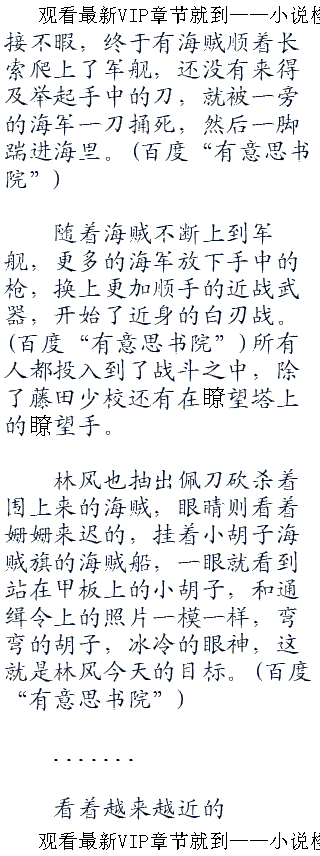 观看最新VIP章节就到——小说检
接不暇，终于有海贼顺着长
索爬上了军舰，还没有来得
及举起手中的刀，就被一旁
的海军一刀捅死，然后一脚
踹进海里。(百度“有意思书
院”)
随着海贼不断上到军
舰，更多的海军放下手中的
枪，换上更加顺手的近战武
器，开始了近身的白刃战。
(百度“有意思书院”)所有
人都投入到了战斗之中，除
了藤田少校还有在瞭望塔上
的瞭望手。
林风也抽出佩刀砍杀着
围上来的海贼，眼睛则看着
姗姗来迟的，挂着小胡子海
贼旗的海贼船，一眼就看到
站在甲板上的小胡子，和通
缉令上的照片一模一样，弯
弯的胡子，冰冷的眼神，这
就是林风今天的目标。(百度
“有意思书院”)
.......
看着越来越近的
观看最新VIP章节就到——小说检